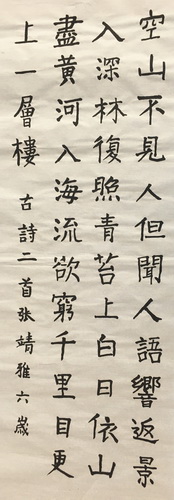 空山不見人但聞人語響返景
入深林復照青苔上白日依山
盡黃河入海流欲窮千里目更
上一層樓 古詩二首張靖雅六歲